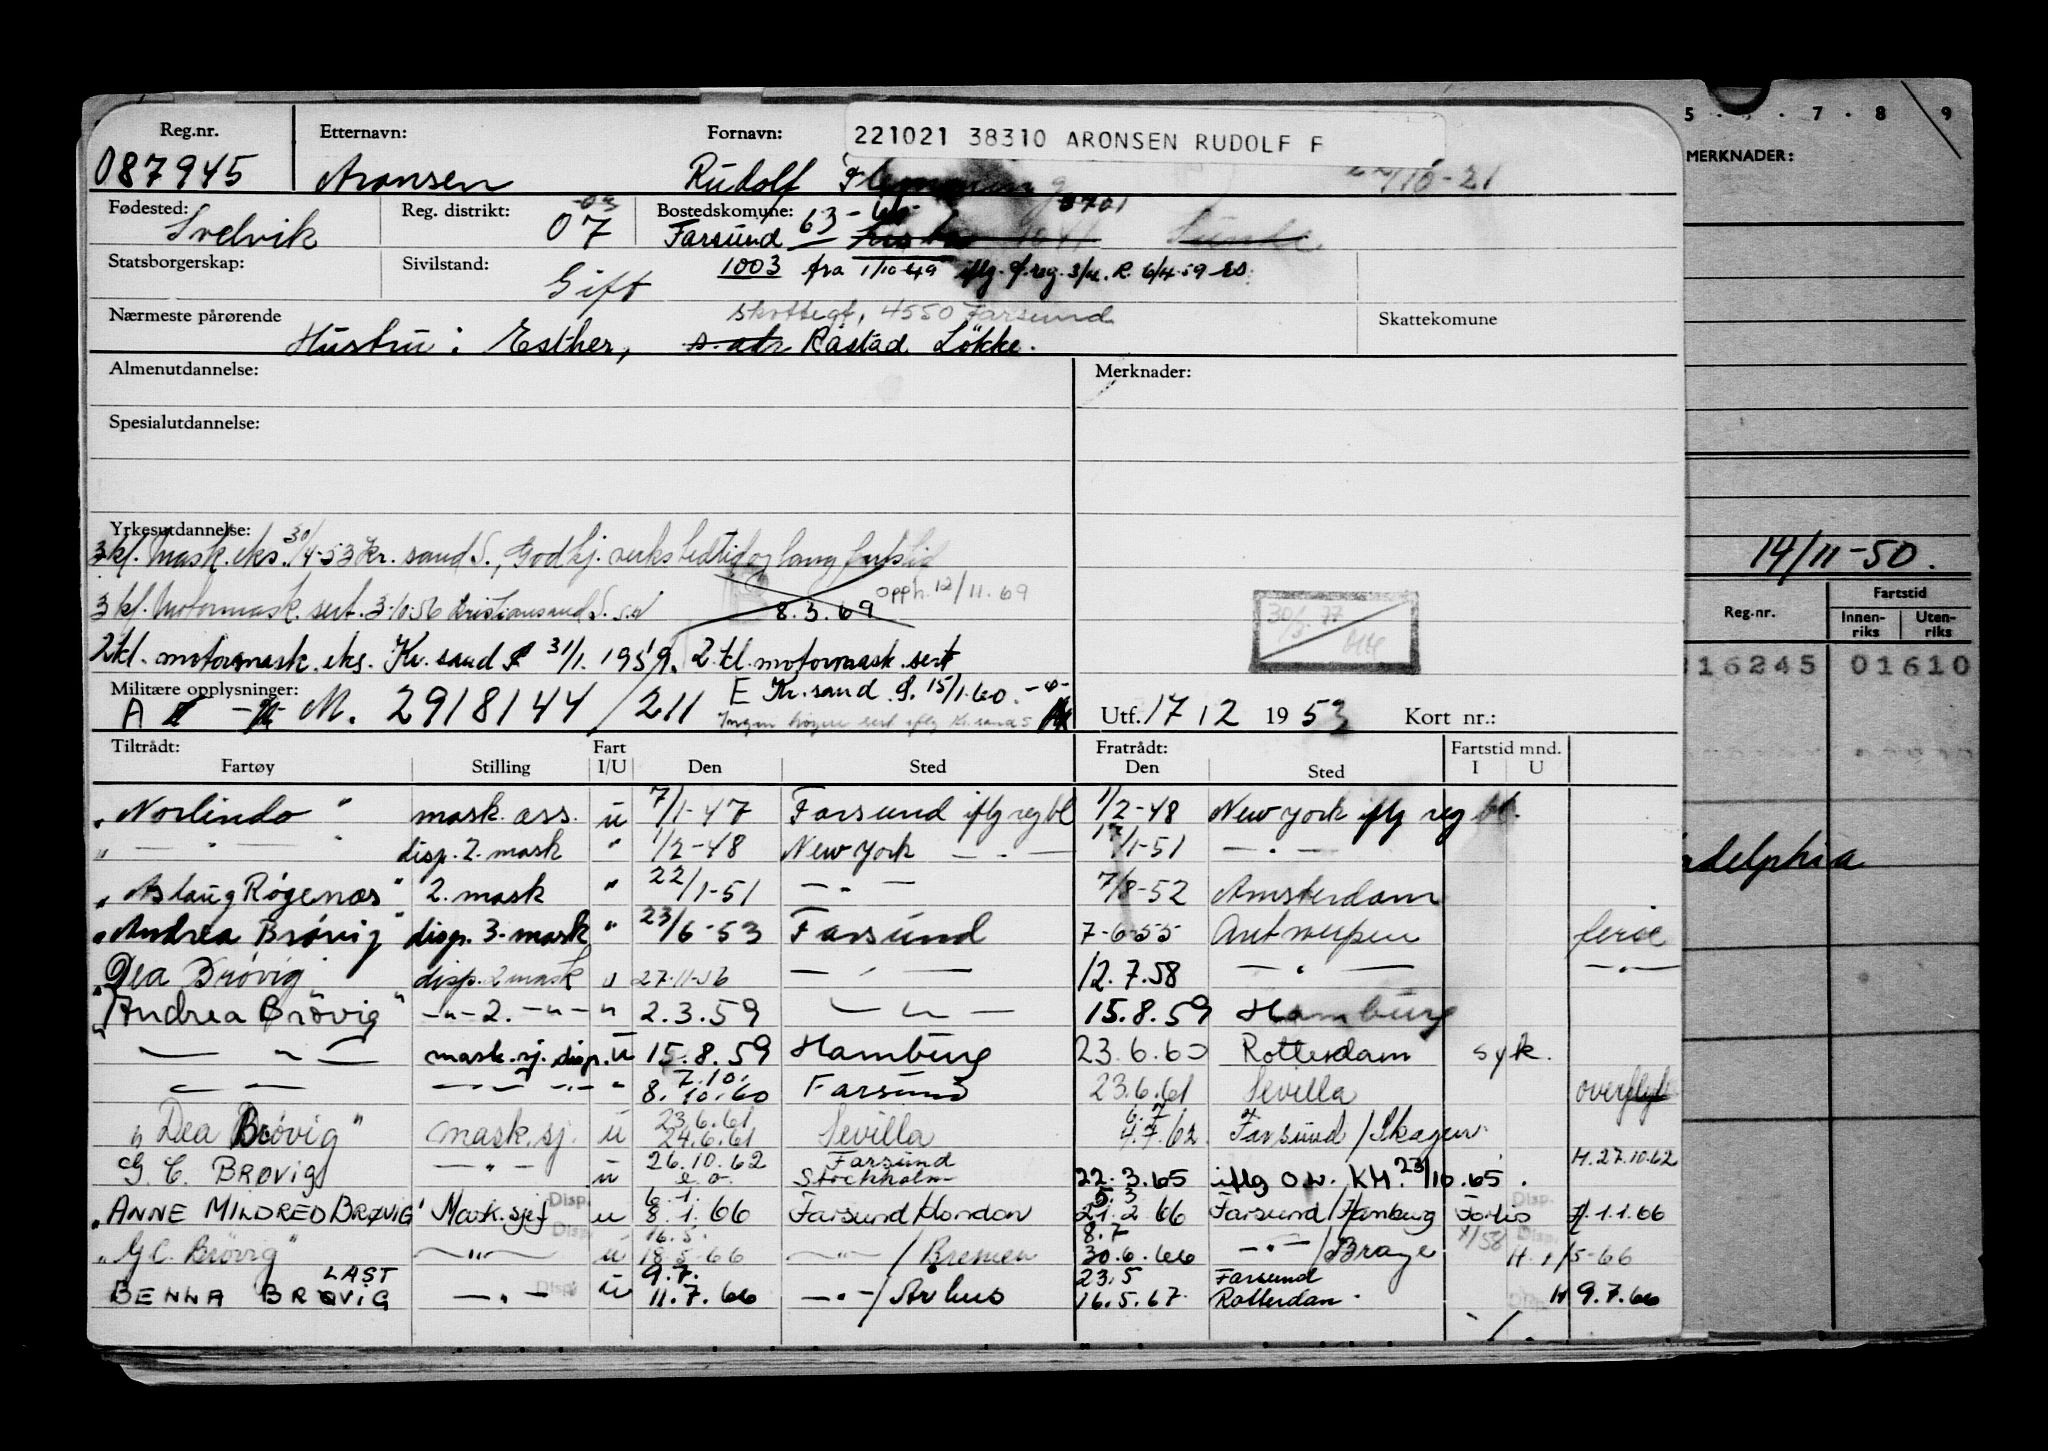 Reg.nr. Etternavn: Fornavn: 221021 38310 ARONSEN RUDOLF F
087945 Aronsen Rudolf Flemming /10-21
Fødested: Reg. distrikt: Bostedskommune: 0701
Svelvik 07 Farsund 63-
Statsborgerskap: Sivilstand: 1003 fra 1/10 49 iflg. f.reg. 3/4. R. 6/4-59
Gift
Nærmeste pårørende Skottegt, 4550 Farsund Skattekomune
Hustru: Esther, s. adr Råstad Løkke.
Almenutdannelse: Merknader:
Spesialutdannelse:
Yrkesutdannelse:
3 kl. Mask. eks. 30/4-53 Kr. sand S., Godkj. verkstedtid og
3 kl. Motormask. sert. 3-10-56 Kristiansand S. 8.3.69 Opph. 12/11.69
2 kl. motormask. eks. Kr. sand S 31/1. 1959. 2. kl. motormask. sert
Militære opplysninger: E Kr. sand S. 15/1.60.
A M. 2918144/211 Ingen høyere sert iflg Kr. sand S
Utf. 17 12 1953 Kort nr.:
Tiltrådt: Fart Fratrådt: Fartstid mnd.
Fartøy Stilling I/U Den Sted Den Sted I U
"Norlindo" mask. ass. u 7/1-47 Farsund iflg reg bl 1/2-48 New York iflg reg bl.
" — " — " disp. 2. mask " 1/2-48 New York — . — 17/1-51 — . —
"Aslaug Røgenæs" 2. mask " 22/1-51 — . — 7/8-52 Amsterdam
"Andrea Brøvig" disp. 3. mask " 23/6-53 Farsund 7-6-55 Antwerpen ferie
"Dea Brøvig" disp. 2 mask u 27-11-56 — " — 12.7.58 — . — — . —
"Andrea Brøvig" — " — 2. — " — " 2.3.59 — " — 15.8.59 Hamburg
— " — mask. sj. disp. u 15.8.59 Hamburg 23.6.60 Rotterdam syk.
— " — — " — " 7.10. 8.10.60 Farsund 23.6.61 Sevilla overflyt
"Dea Brøvig" mask. sj. u 23.6.61 24.6.61 Sevilla 6.7 4.7.62 Farsund/Skagen
G. C. BRØVIG — " — u 26.10.62 e.o. Farsund Stockholm 22.3.65 iflg O.W. KH. 23/10.65. H. 27.10.62
"ANNE MILDRED BRØVIG" Mask.sjef Disp. u 6.1. 8.1.66 Farsund/London 5.3 21.2 66 Farsund/Hamburg Forlis Disp. H. 1.1.66
"G C. Brøvig" — " — Disp. u 16.5. 18.5.66 — " — / Bremen 8.7 30.6.66 — " — /Brage 1/58 Disp. H. 1/5-66
BENNA BRØVIG LAST — " — Disp u 9.7. 11.7.66 — . — / Arhus 23.5 16.5.67. Farsund Rotterdam. Disp. H 9.7.66
5 . . . 7 . 8 9
MERKNADER:
14/11-50.
Reg.nr. Fartstid
Innen-riks Uten-riks
16245 01610
adelphia